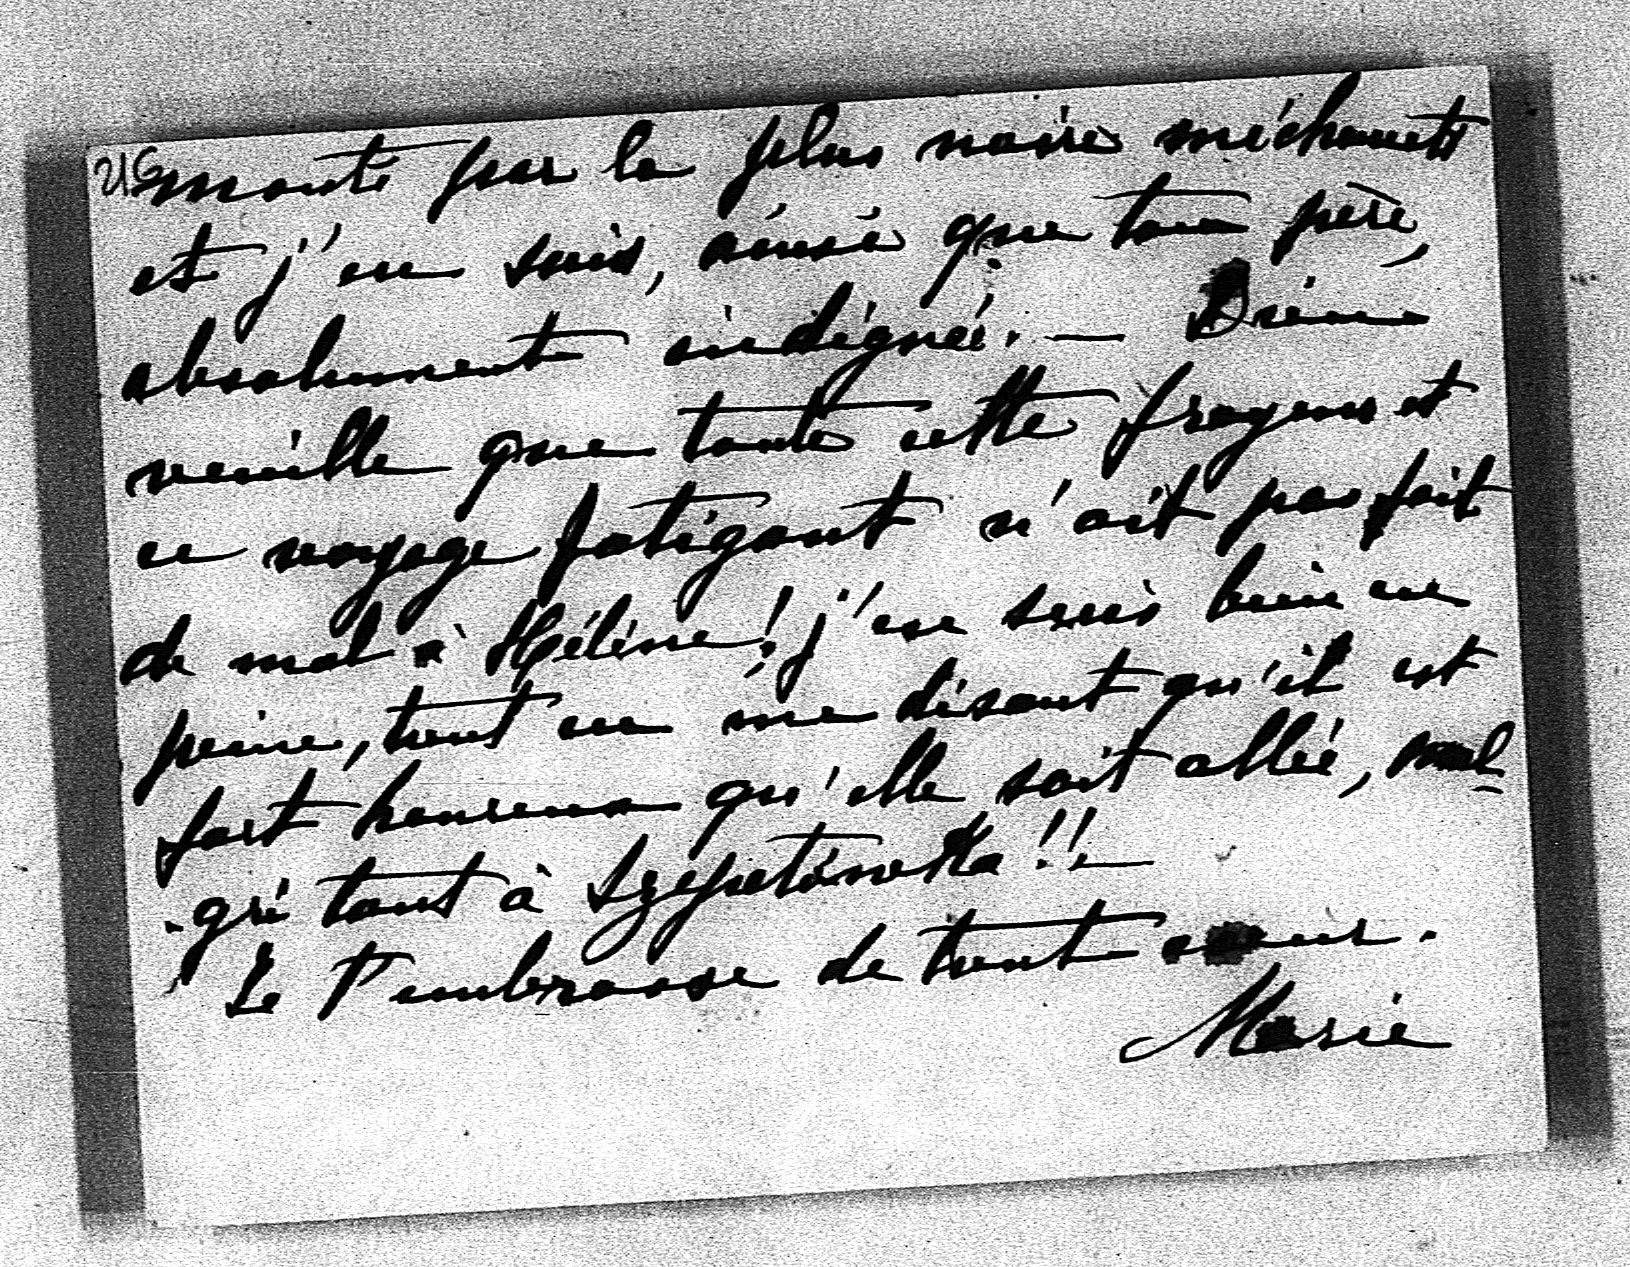 monté par la plus noire méchanceté
et j'en suis, ainsi que ton père,
absolument indignée. — Dieu
veuille que toute cette frayeur et
ce voyage fatigant n'ait pas fait
de mal à Hélène! j'en suis bien en
peine, tout en me disant qu'il est
fort heureux qu'elle soit allée, mal-
-gré tout à Szepetówka!! —
Je t'embrasse de tout cœur.
Marie